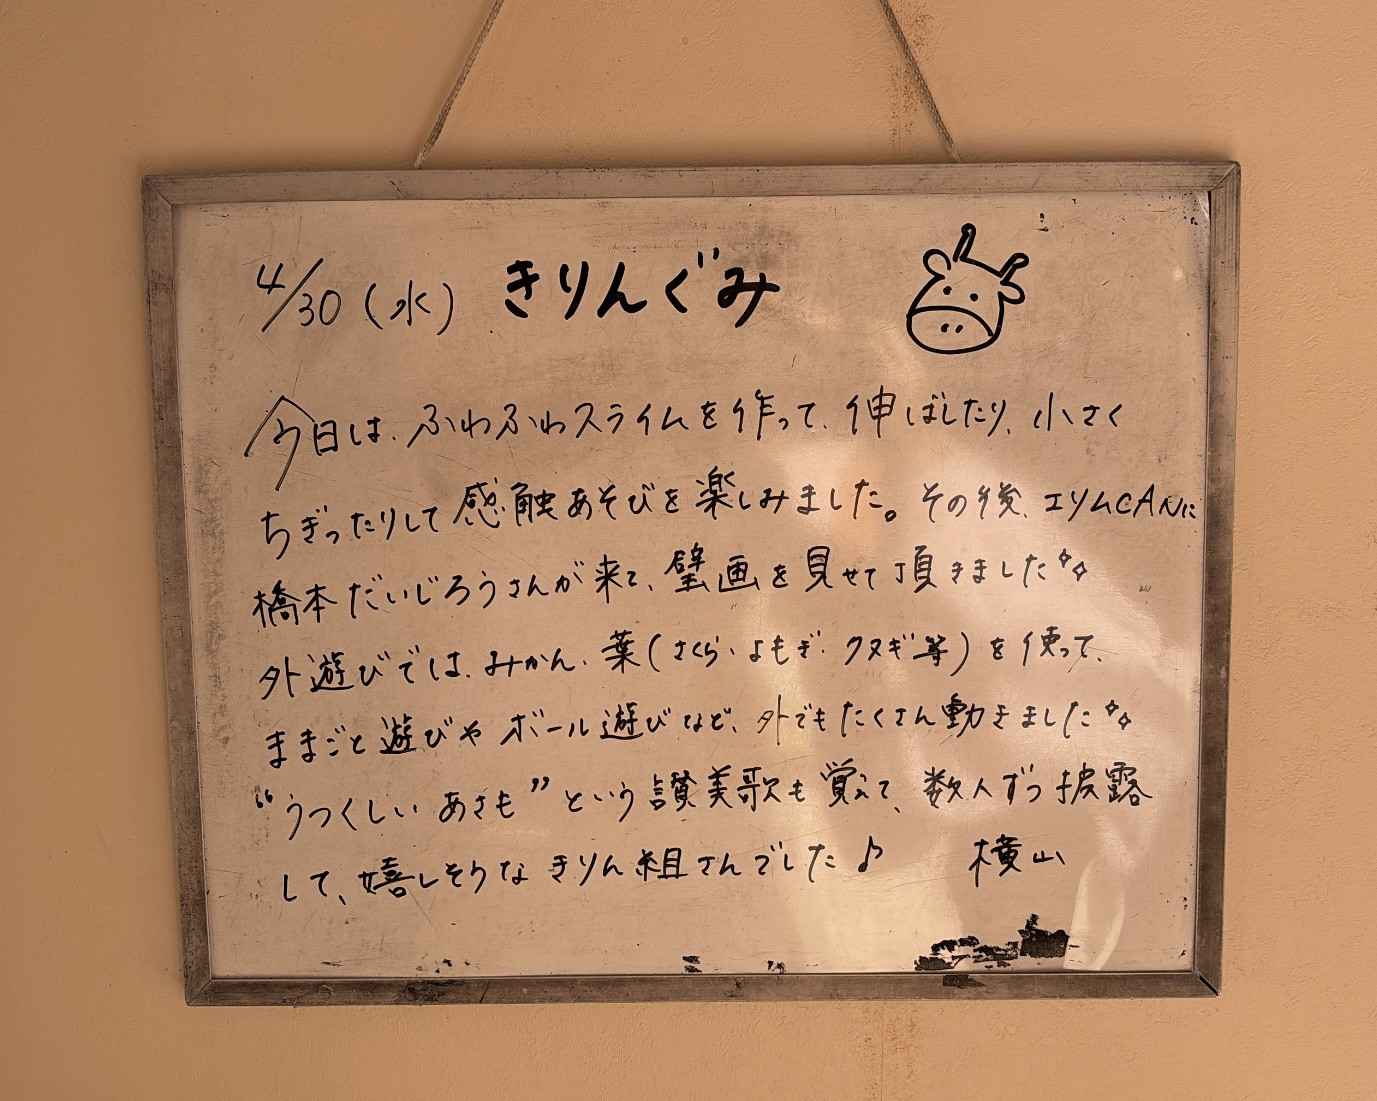 4/30(水) きりんぐみ
今日は、ふわふわスライムを作って、伸ばしたり、小さく
ちぎったりして感触あそびを楽しみました。その後、エリムCANに
橋本だいじろうさんが来て、壁画を見せて頂きました✧✧
外遊びでは、みかん、葉(さくら・よもぎ・クヌギ等)を使って、
ままごと遊びやボール遊びなど、外でもたくさん動きました✧✧
“うつくしいあさも”という讃美歌も覚えて、数人ずつ披露
して、嬉しそうなきりん組さんでした♪ 横山